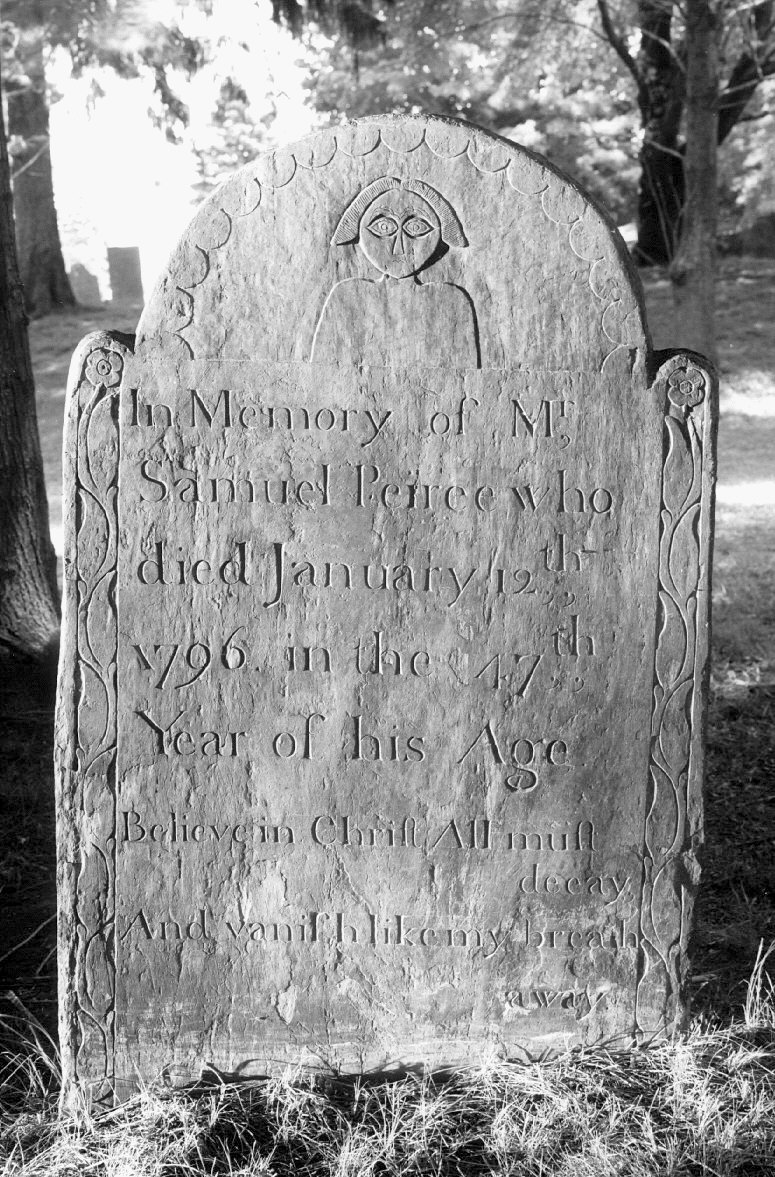 In Memory of Mr,
Samuel Peirce who
died January 12th,,
1796. in the 47th,,
Year of his Age.
Believe in Chriſt, All muſt
decay
And, vaniſh like my breath
away.